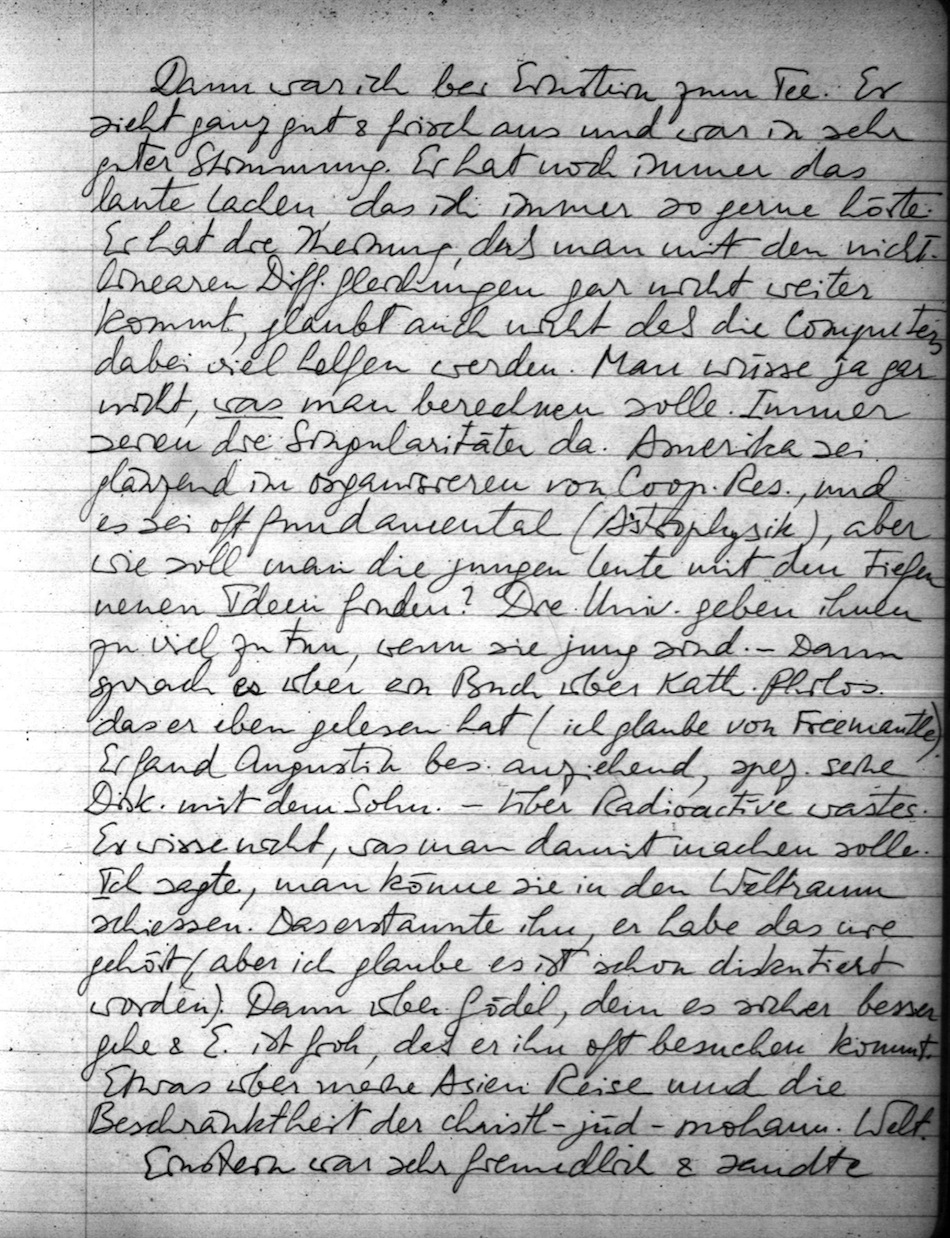 Dann war ich bei Einstein zum Tee. Er
sieht ganz gut & frisch aus und war in sehr
guter Stimmung. Er hat noch immer das
laute Lachen, das ich immer so gerne hörte.
Er hat die Meinung, daß man mit den nicht-
linearen Diff. gleichungen gar nicht weiter
kommt, glaubt auch nicht daß die Computers
dabei viel helfen werden. Man wüsse ja gar
nicht, was man berechnen solle. Immer
seien die Singularitäten da. Amerika sei
glänzend im organisieren von Coop. Res., und
es sei oft fundamental (Astrophysik), aber
wie soll man die jungen Leute mit den tiefen
neuen Ideen finden? Die Univ. geben ihnen
zu viel zu tun, wenn sie jung sind. – Dann
sprach er über ein Buch über Kath. Philos.
das er eben gelesen hat (ich glaube von Freemantle).
Er fand Augustin bes. anziehend, spez. seine
Disk. mit dem Sohn. – Über Radioactive wastes.
Er wisse nicht, was man damit machen solle.
Ich sagte, man könne sie in den Weltraum
schiessen. Das erstaunte ihn, er habe das nie
gehört (aber ich glaube es ist schon diskutiert
worden). Dann über Gödel, dem es sicher besser
gehe & E. ist froh, daß er ihn oft besuchen kommt.
Etwas über meine Asien Reise und die
Beschränktheit der christl-jüd-moham. Welt.
Einstein war sehr freundlich & sandte